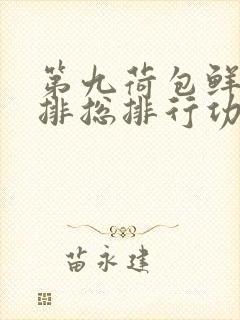 第九荷包鲜
排捴排行功
苗永建